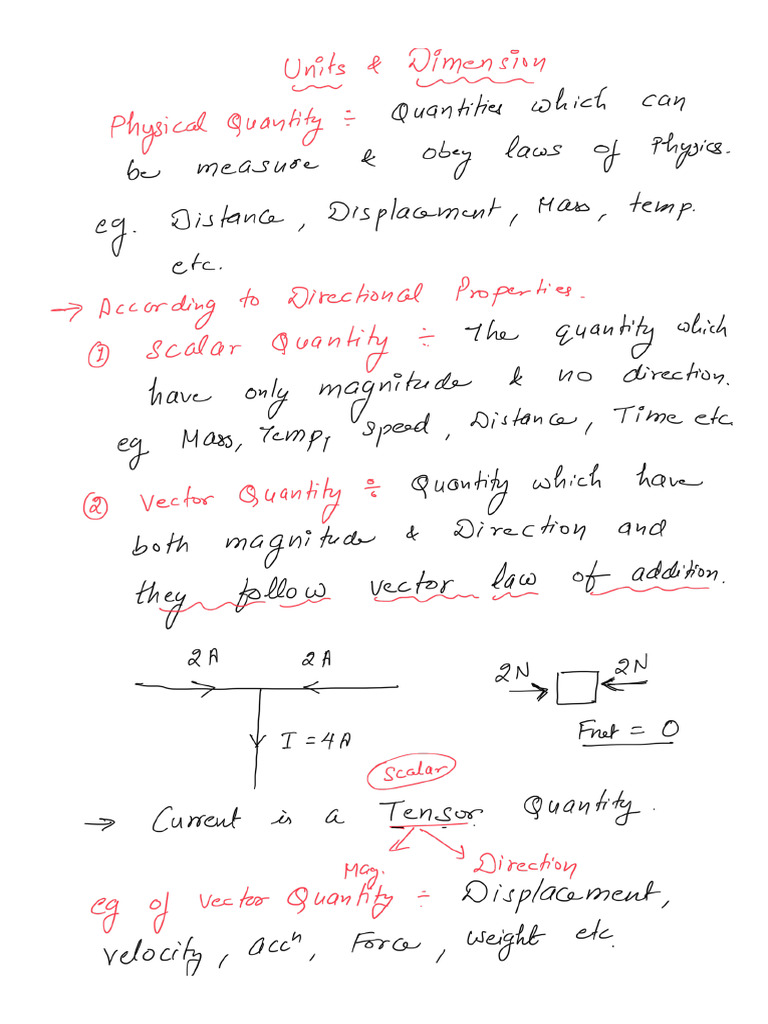 Units & Dimension
Physical Quantity ÷ Quantities which can
be measure & obey laws of Physics.
eg. Distance, Displacement, Mass, temp.
etc.
→ According to Directional Properties.
① Scalar Quantity ÷ The quantity which
have only magnitude & no direction.
eg Mass, Temp, speed, Distance, Time etc.
② Vector Quantity ÷ Quantity which have
both magnitude & Direction and
they follow vector law of addition.
2A 2A 2N 2N
I = 4A Fnet = 0
Scalar
→ Current is a Tensor Quantity.
Mag. Direction
eg of Vector Quantity ÷ Displacement,
velocity, accⁿ, Force, weight etc.